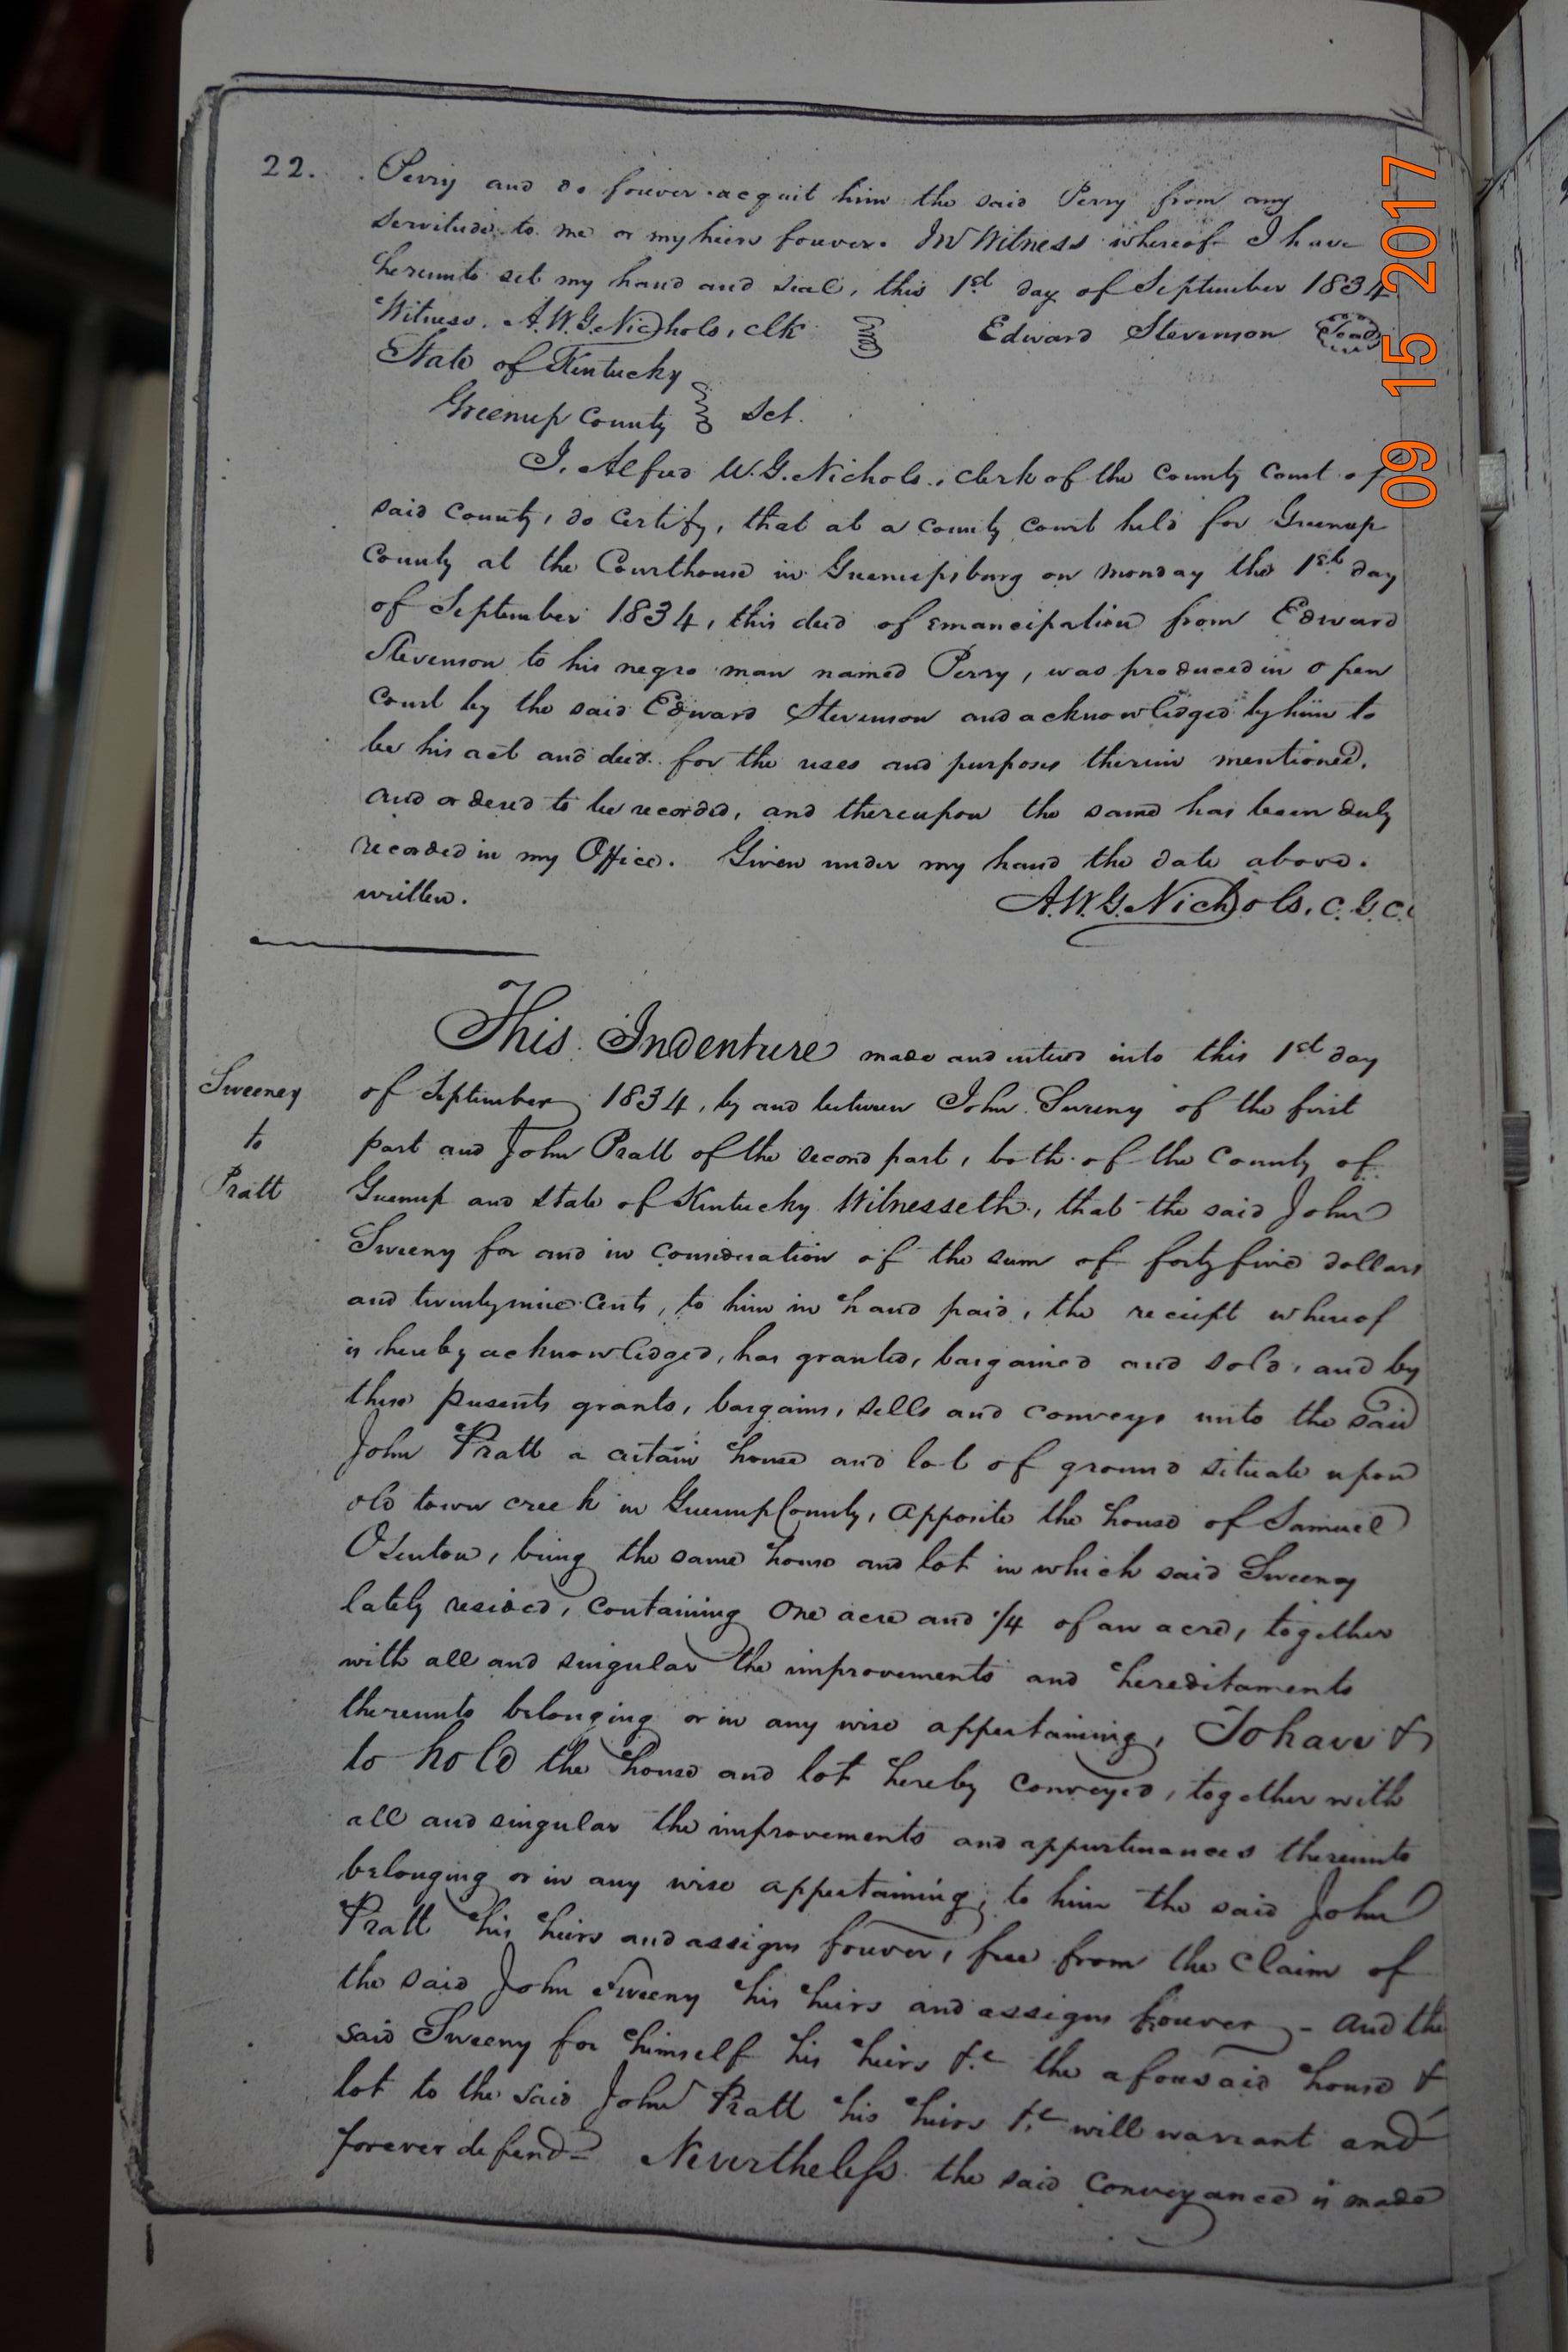 22.
Perry and do forever acquit him the said Perry from any
servitude to me or my heirs forever. In Witness whereof I have
hereunto set my hand and seal, this 1st day of September 1834
Witness. A.W.G. Nichols, clk Edward Stevenson Seal
State of Kentucky
Greenup County Sct.
I, Alfred W.G. Nichols, clerk of the County Court of
said county, do certify, that at a county court held for Greenup
County at the Courthouse in Greenupsburg on monday the 1st day
of September 1834, this deed of emancipation from Edward
Stevenson to his negro man named Perry, was produced in open
Court by the said Edward Stevenson and acknowledged by him to
be his act and deed for the uses and purposes therein mentioned,
and ordered to be recorded, and thereupon the same has been duly
recorded in my Office. Given under my hand the date above.
written. A.W.G. Nichols, C.G.C.C
This Indenture made and entered into this 1st day
Sweeney
to
Pratt
of September 1834, by and between John Sweeny of the first
part and John Pratt of the second part, both of the County of
Greenup and State of Kentucky Witnesseth, that the said John
Sweeny for and in Consideration of the sum of forty five dollars
and twenty nine Cents, to him in hand paid, the receipt whereof
is hereby acknowledged, has granted, bargained and sold, and by
these presents grants, bargains, sells and conveys unto the said
John Pratt a certain house and lot of ground situate upon
old town creek in Greenup County, Opposite the house of Samuel
Osenton, being the same house and lot in which said Sweeney
lately resided, Containing One acre and 1/4 of an acre, together
with all and singular the improvements and hereditaments
thereunto belonging or in any wise appertaining, To have &
to hold the house and lot hereby Conveyed, together with
all and singular the improvements and appurtenances thereunto
belonging or in any wise appertaining, to him the said John
Pratt his heirs and assigns forever, free from the Claim of
the said John Sweeny his heirs and assigns forever - and the
said Sweeny for himself his heirs &c the aforesaid house &
lot to the said John Pratt his heirs &c will warrant and
forever defend - Nevertheless the said Conveyance is made
09 15 2017